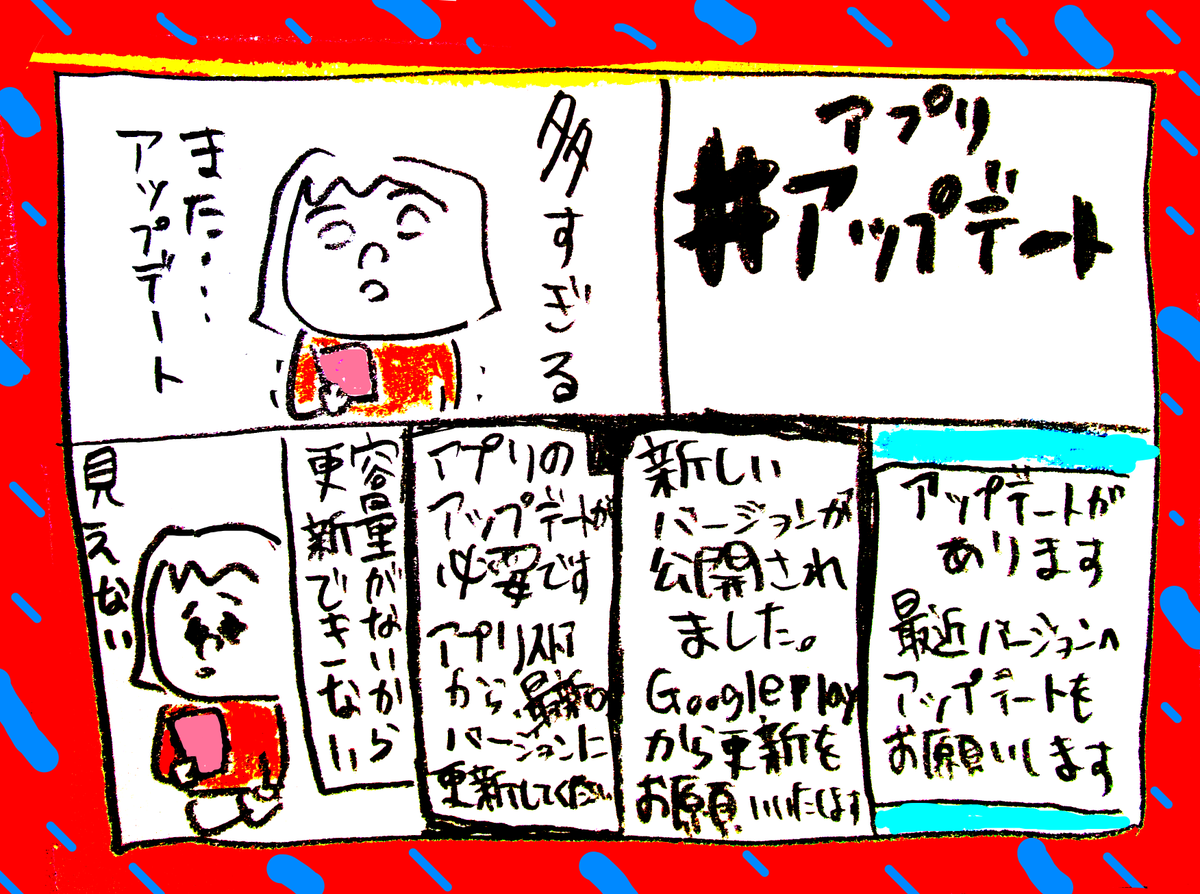 アプリ
#アップデート
多すぎる
また・・・・
アップデート
アップデートが
あります
最近バージョンへ
アップデートを
お願いします
新しい
バージョンが
公開され
ました。
Google Play
から更新を
お願いいたします
アプリの
アップデートが
必要です
アプリストア
から最新の
バージョンに
更新してください
容量がないから
更新できない
見えない